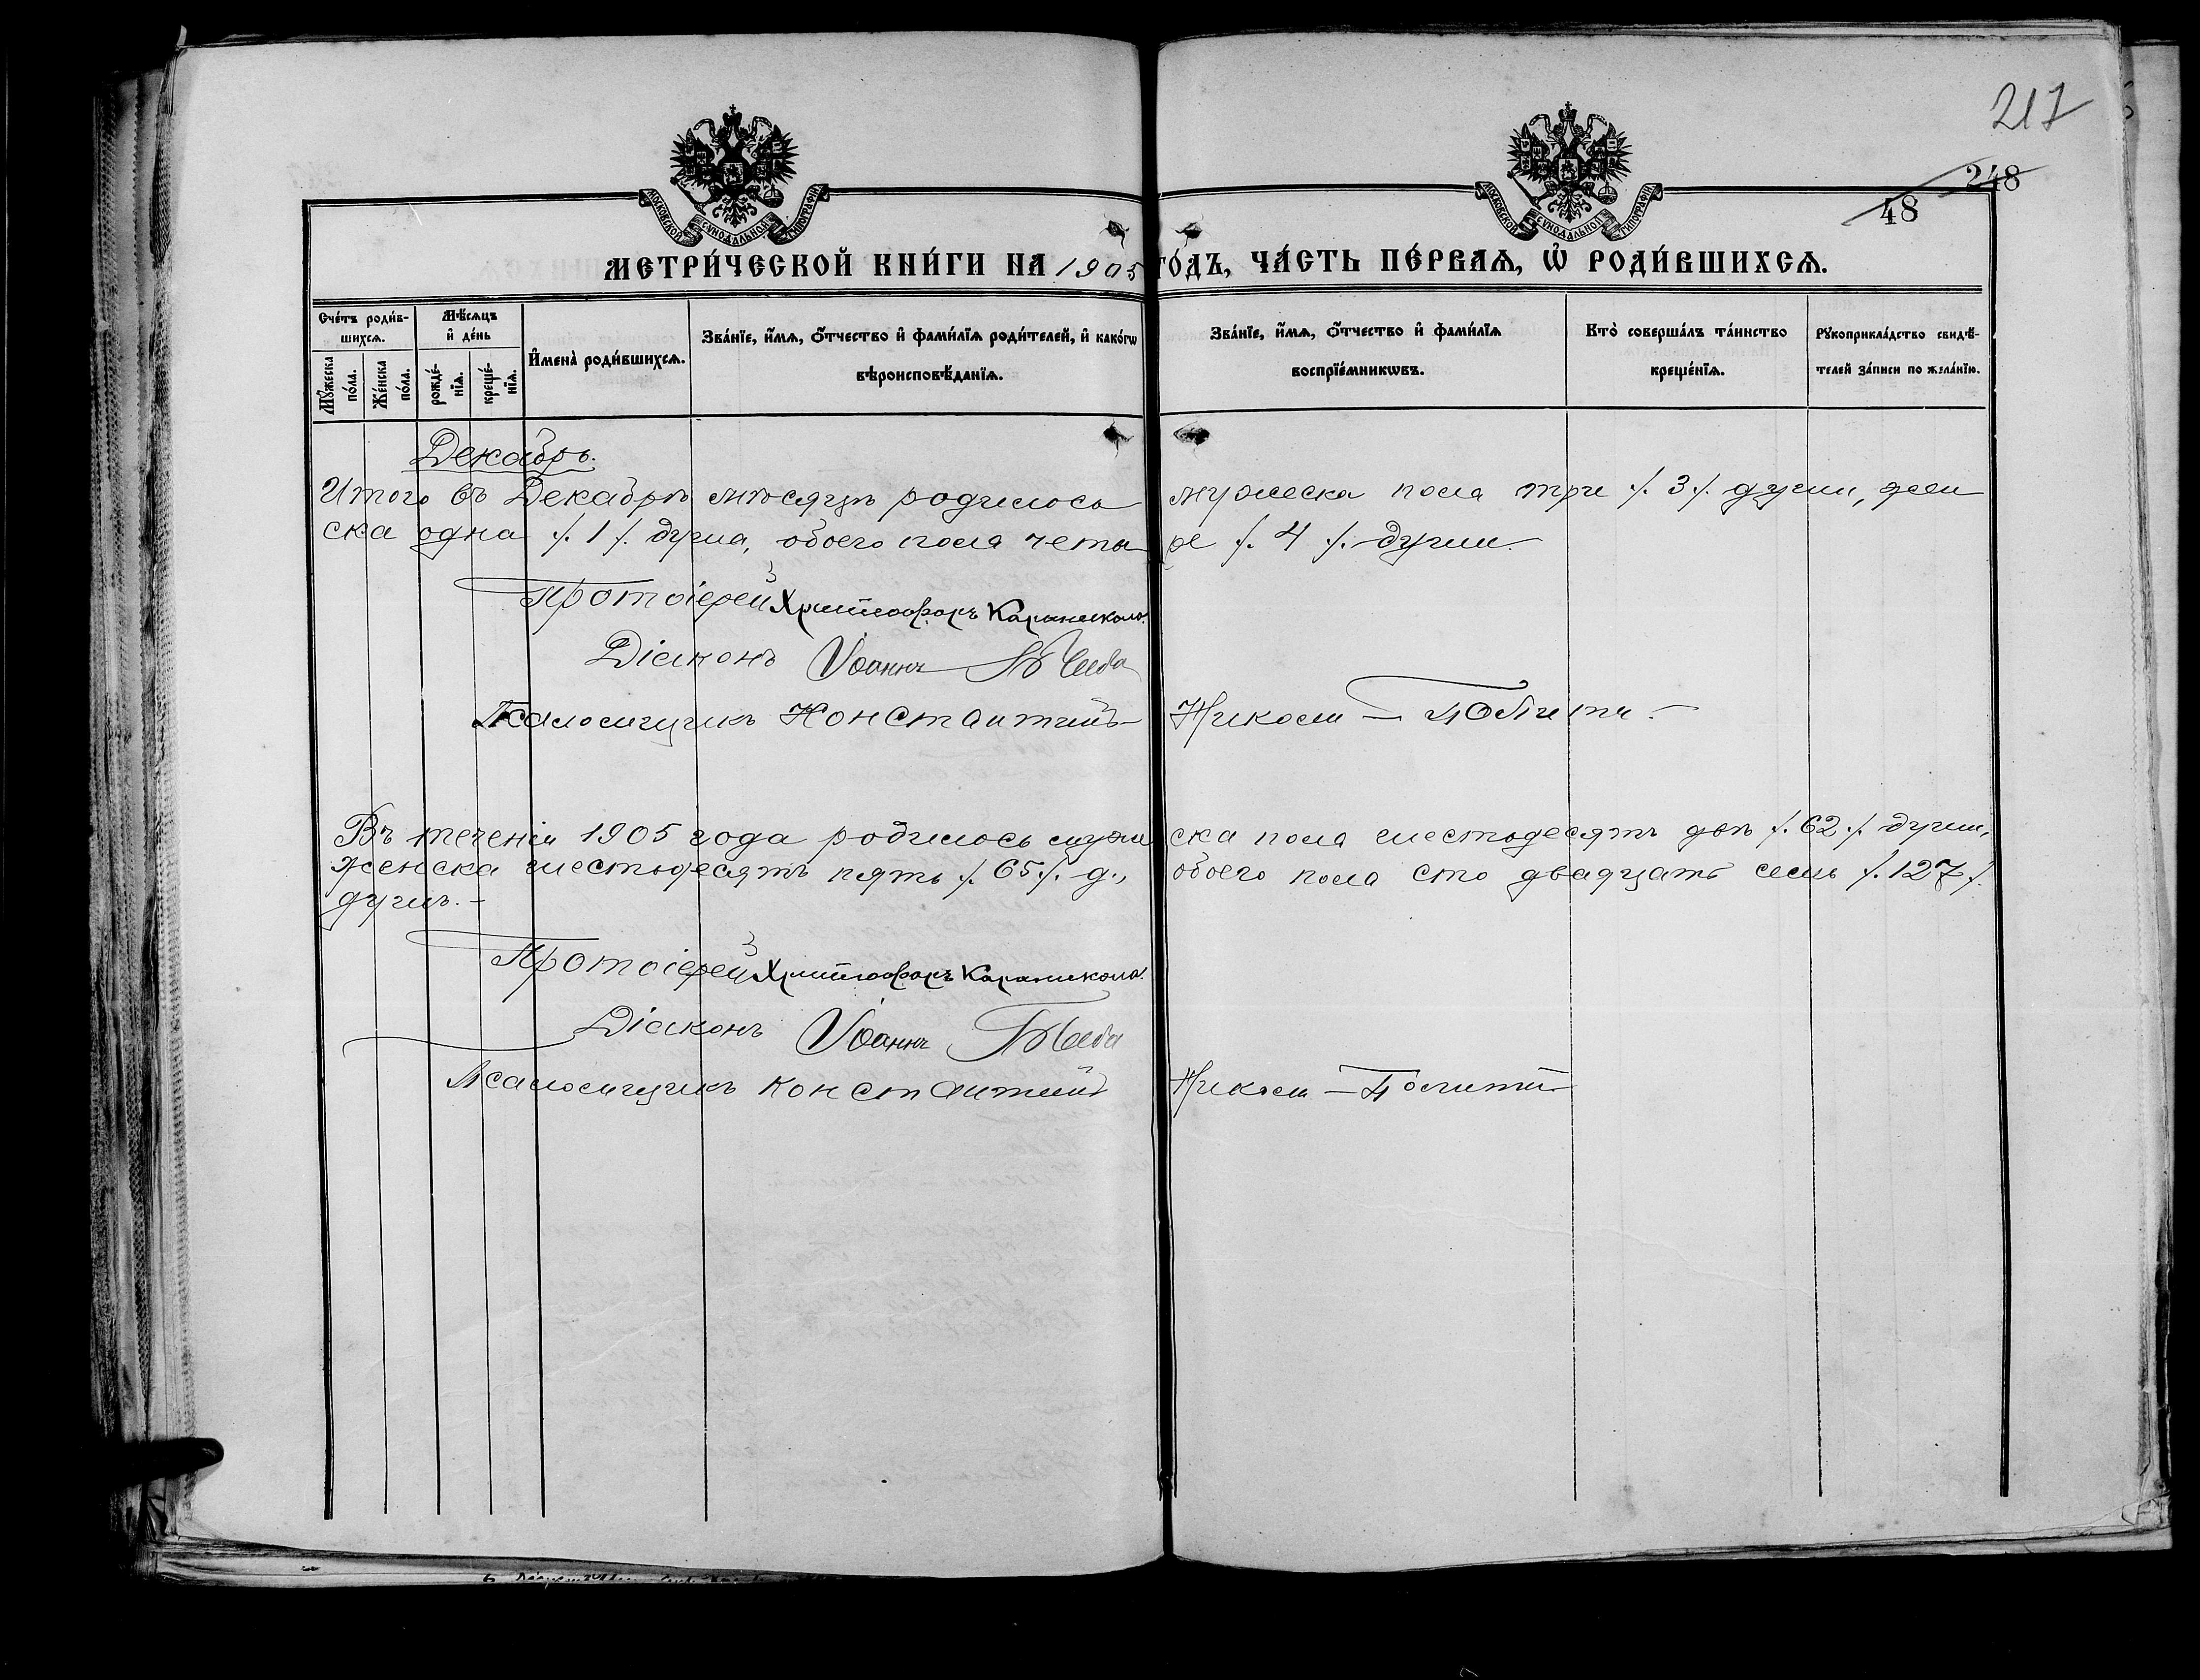 217
248
48
МОСКОВСКОЙ СѴНОДАЛЬНОЙ ТИПОГРАФІИ
МОСКОВСКОЙ СѴНОДАЛЬНОЙ ТИПОГРАФІИ
МЕТРИ́ЧЕСКОЙ КНИ́ГИ НА 1905 ГО́ДЪ, ЧА́СТЬ ПЕ́РВАѦ, Ѽ РОДИ́ВШИХСѦ.
Сче́тъ роди́в-
шихсѧ.
Мꙋ́жеска по́ла.
Же́нска по́ла.
Мѣ́сѧцъ
и҆ де́нь
рожде́-
нїѧ.
креще́-
нїѧ.
И҆мена̀ роди́вшихсѧ.
Зва́нїе, и҆́мѧ, ѻ҆́тчество и҆ фами́лїѧ роди́телей, и҆ како́гѡ
вѣроисповѣ́данїѧ.
Зва́нїе, и҆́мѧ, ѻ҆́тчество и҆ фами́лїѧ
воспрїе́мникѡвъ.
Кто̀ соверша́лъ та́инство
креще́нїѧ.
Рꙋкоприкла́дство свидѣ́-
телей за́писи по жела́нїю.
Декабрь.
Итого въ Декабрѣ мѣсяцѣ родилось мужеска пола три /. 3 /. души, жен
ска одна /. 1 /. душа, обоего пола четы ре /. 4 /. души.
Протоіерей Христофоръ Караникола.
Діаконъ Іоаннъ
Псаломщикъ Константинъ Никола —
Въ теченіи 1905 года родилось муже ска пола шестьдесятъ двѣ /. 62 /. души,
женска шестьдесятъ пять /. 65 /. д., обоего пола сто двадцать семь /. 127 /.
душъ. –
Протоіерей Христофоръ Караникола.
Діаконъ Іоаннъ
Псаломщикъ Константинъ Никола —